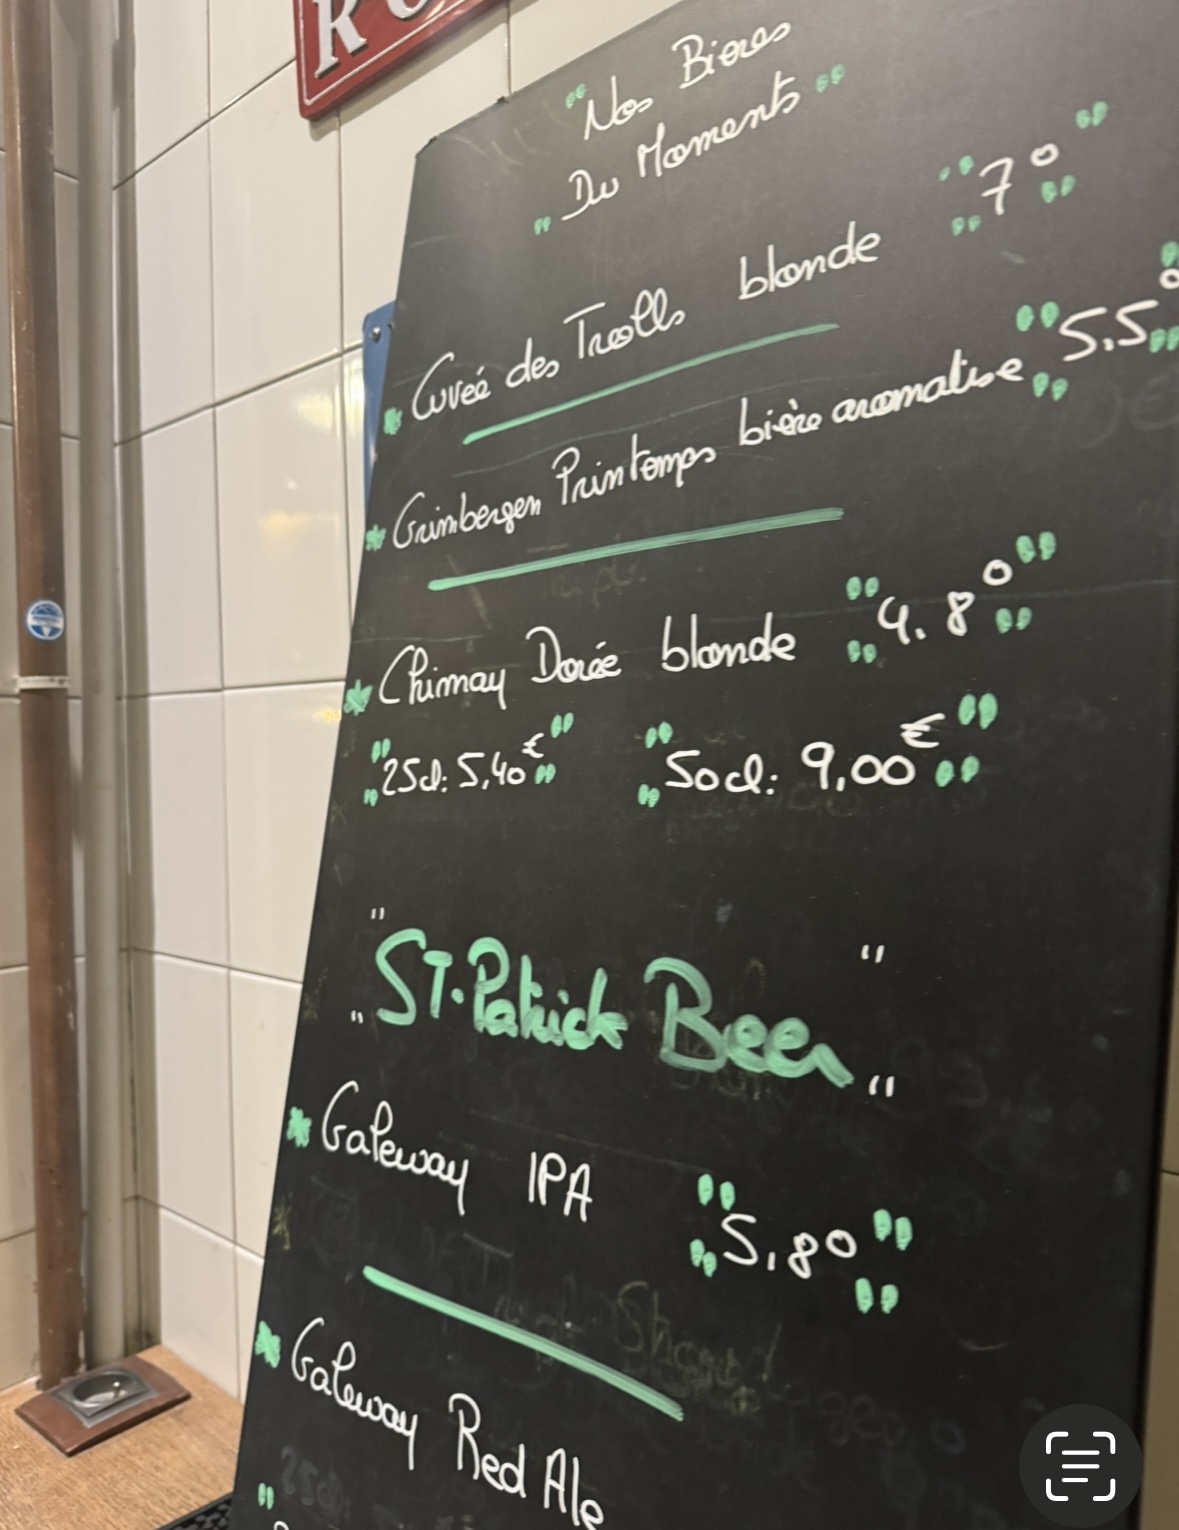 "Nos Bieres
"Du Moments"
Cuveé des Trolls blonde "7°"
Grimbergen Printemps bière aromatise "5.5°"
Chimay Dorée blonde "4.8°"
"25cl: 5,40€" "50cl: 9,00€"
"ST. Patrick Beer"
Galeway IPA "5,80"
Galeway Red Ale